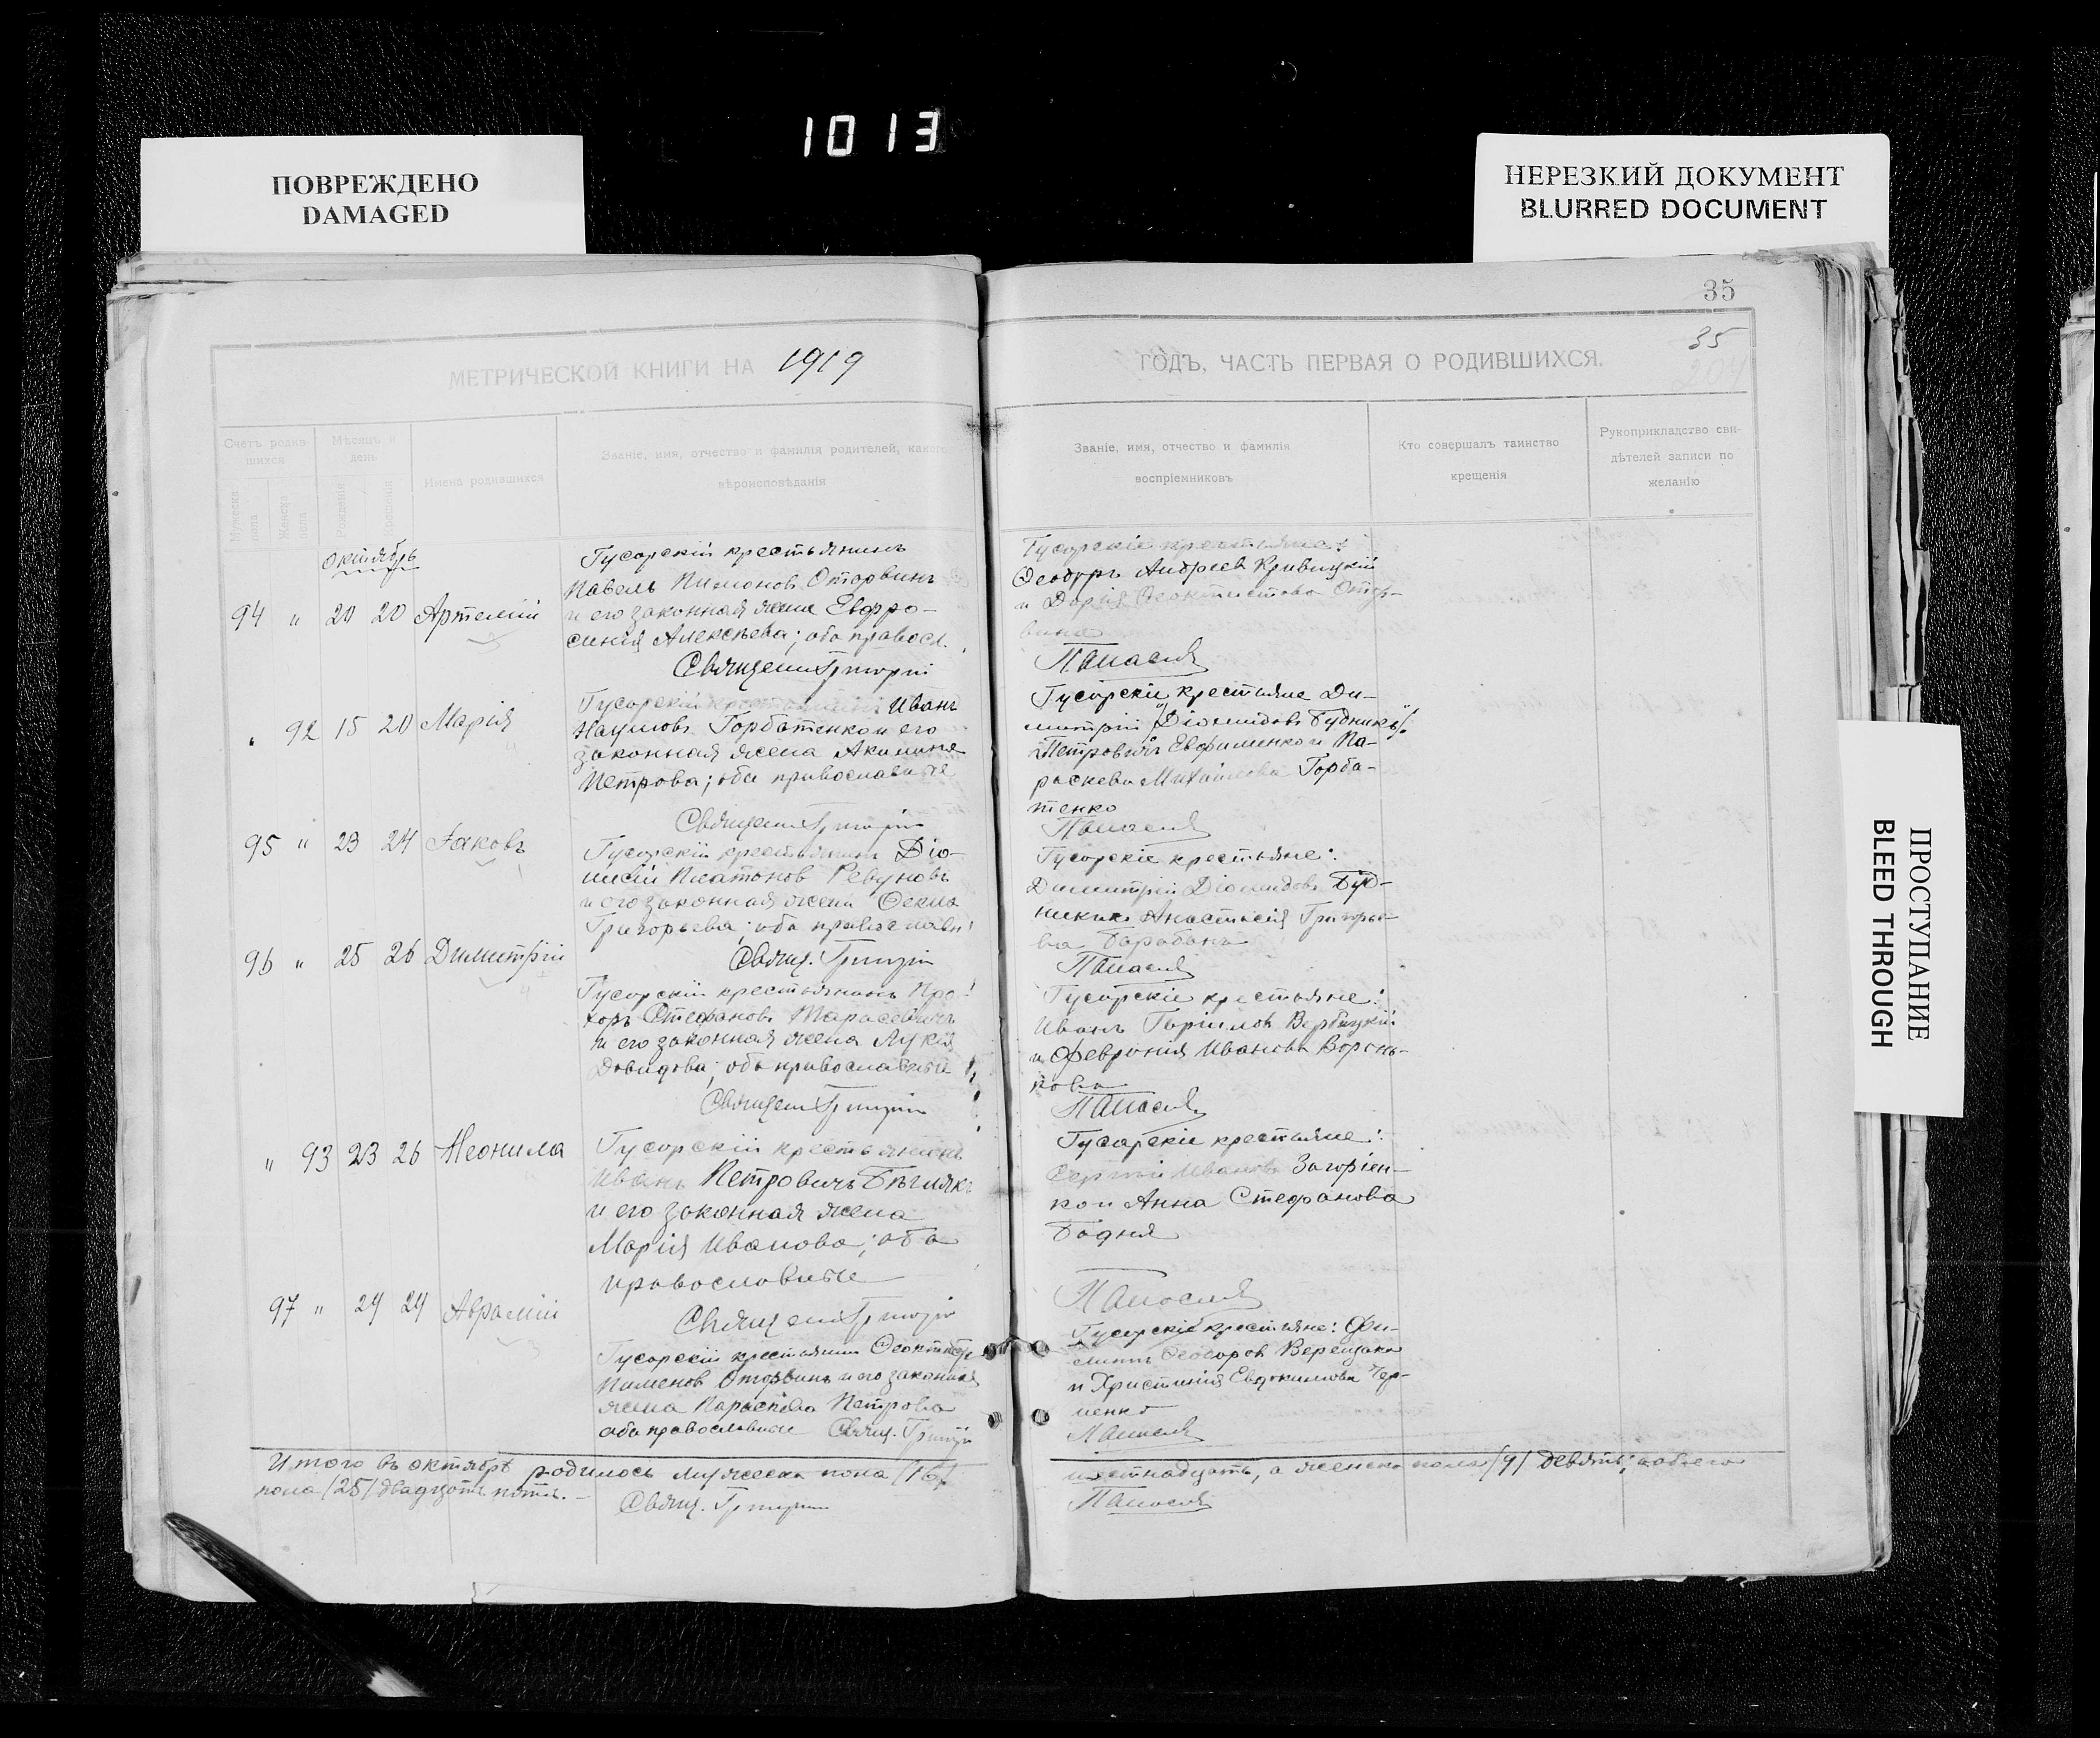 1013
ПОВРЕЖДЕНО
DAMAGED
НЕРЕЗКИЙ ДОКУМЕНТ
BLURRED DOCUMENT
ПРОСТУПАНИЕ
BLEED THROUGH
35
35
204
МЕТРИЧЕСКОЙ КНИГИ НА 1919
ГОДЪ, ЧАСТЬ ПЕРВАЯ О РОДИВШИХСЯ.
Счетъ родив-
шихся
Мужеска
пола
Женска
пола
Мѣсяцъ и
день
рожденія
крещенія
Имена родившихся
Званіе, имя, отчество и фамилія родителей, какого
вѣроисповѣданія
Званіе, имя, отчество и фамилія
воспріемниковъ
Кто совершалъ таинство
крещенія
Рукоприкладство сви-
дѣтелей записи по
желанію
Октябрь
94 " 20 20 Артемій
Гусарскій крестьянинъ
Павелъ Пимоновъ Оторвинъ
и его законная жена Евфро-
синія Алексѣева; оба правосл.
Священ Григорій
Гусарскіе крестьяне:
Ѳеодоръ Андреев Кривицкій
и Дарія Ѳеоктистова Отор-
вина
" 92 15 20 Марія
Гусарскій крестьянинъ Иванъ
Наумовъ Горбатенко и его
законная жена Акилина
Петрова; оба православные
Священ Григорій
Гусарскіе крестьяне Ди-
митрій Діомидовъ Будникъ
Петровичъ Евфименко и Па-
раскева Михайлова Горба-
тенко
95 " 23 24 Іаковъ
Гусарскій крестьянинъ Діо-
нисій Платонов Ревуновъ
и его законная жена Ѳекла
Григорьева; оба православн
Свящ. Григорій
Гусарскіе крестьяне:
Димитрій Діомидовъ Буд-
никъ и Анастасія Григорье-
ва Барабанъ
96 " 25 26 Димитрій
Гусарскій крестьянинъ Про-
хоръ Стефановъ Тарасевичъ
и его законная жена Лукія
Давидова; оба православные
Священ Григорій
Гусарскіе крестьяне:
Иванъ Вербицкій
и Февронія Иванова Воронь-
кова
" 93 23 26 Неонила
Гусарскій крестьянинъ
Иванъ Петровичъ Бѣглякъ
и его законная жена
Марія Иванова; оба
православные
Священ Григорій
Гусарскіе крестьяне:
Сергій Ивановъ Загоріен-
ко и Анна Стефанова
Бодня
97 " 29 29 Аврамій
Гусарскій крестьянин Ѳеоктист
Пименов Оторвинъ и его законная
жена Параскева Петрова
оба православные Свящ. Григорій
Гусарскіе крестьяне: Фи-
липпъ Ѳеодоров Верещака
и Христинія Евдокимова Чер-
ненко
Итого въ октябрѣ родилось мужеска пола /16/ шестнадцать, а женска пола /9/ девять; а обоего
пола /25/ двадцать пять.
Свящ. Григорій